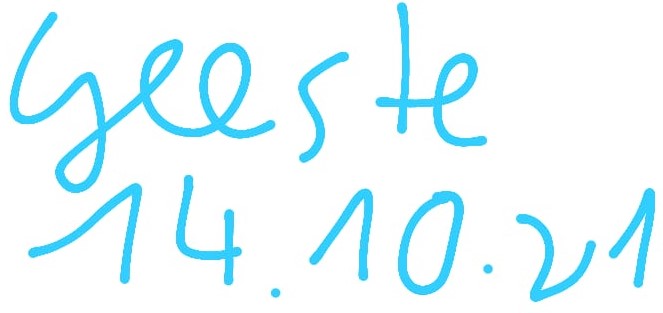 Geeste
14.10.21